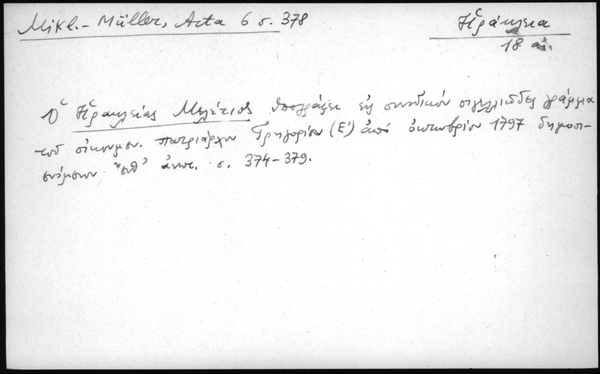 Mikl.-Müller, Acta 6 σ. 378
Ἡράκλεια
18 αἰ.
Ὁ Ἡρακλείας Μελέτιος ὑπογράφει εἰς συνοδικὸν σιγιλλιῶδες γράμμα
τοῦ οἰκουμ. πατριάρχου Γρηγορίου (Ε') ἀπὸ ὀκτωβρίου 1797 δημοσι-
ευόμενον αὐτ. σ. 374-379.